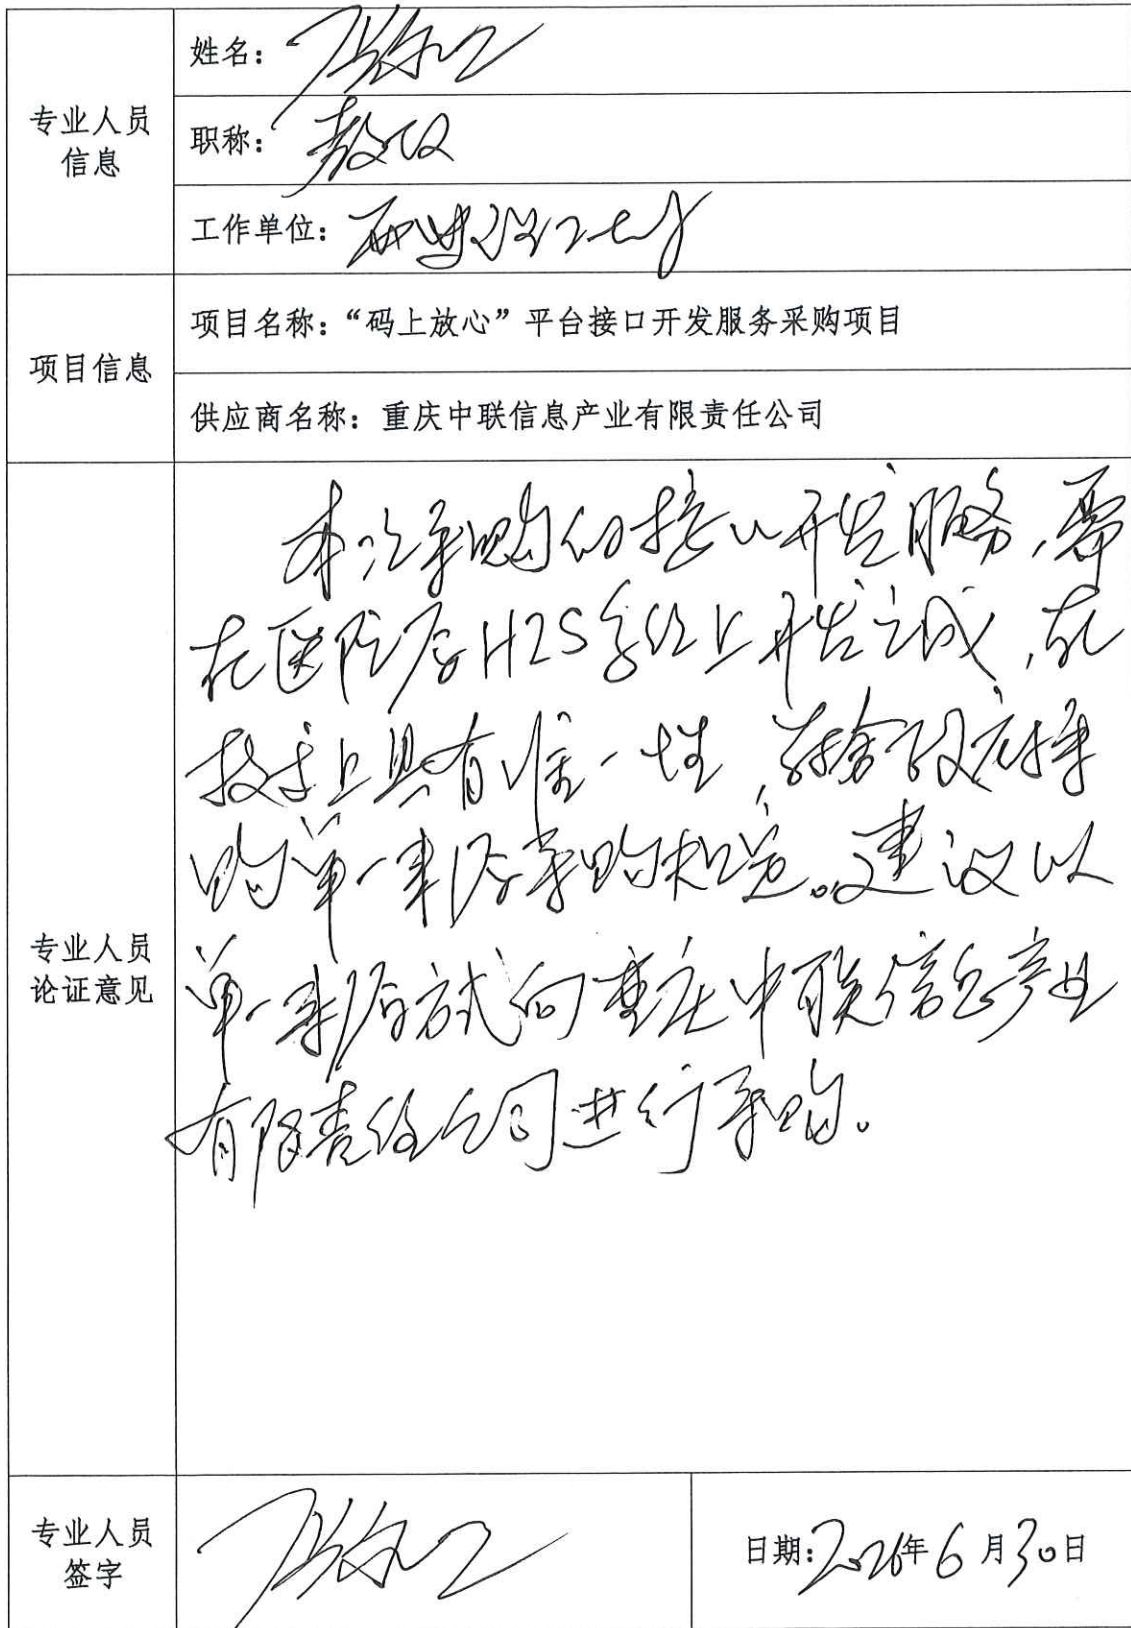 专业人员
信息
姓名:
职称: 教授
工作单位:
项目信息
项目名称: “码上放心”平台接口开发服务采购项目
供应商名称: 重庆中联信息产业有限责任公司
专业人员
论证意见
本次采购的接口开发服务,需
在医院原HIS系统上开发完成,在
技术上具有唯一性,符合政府采
购单一来源采购规定。建议以
单一来源方式向重庆中联信息产业
有限责任公司进行采购。
专业人员
签字
日期: 2026年6月30日